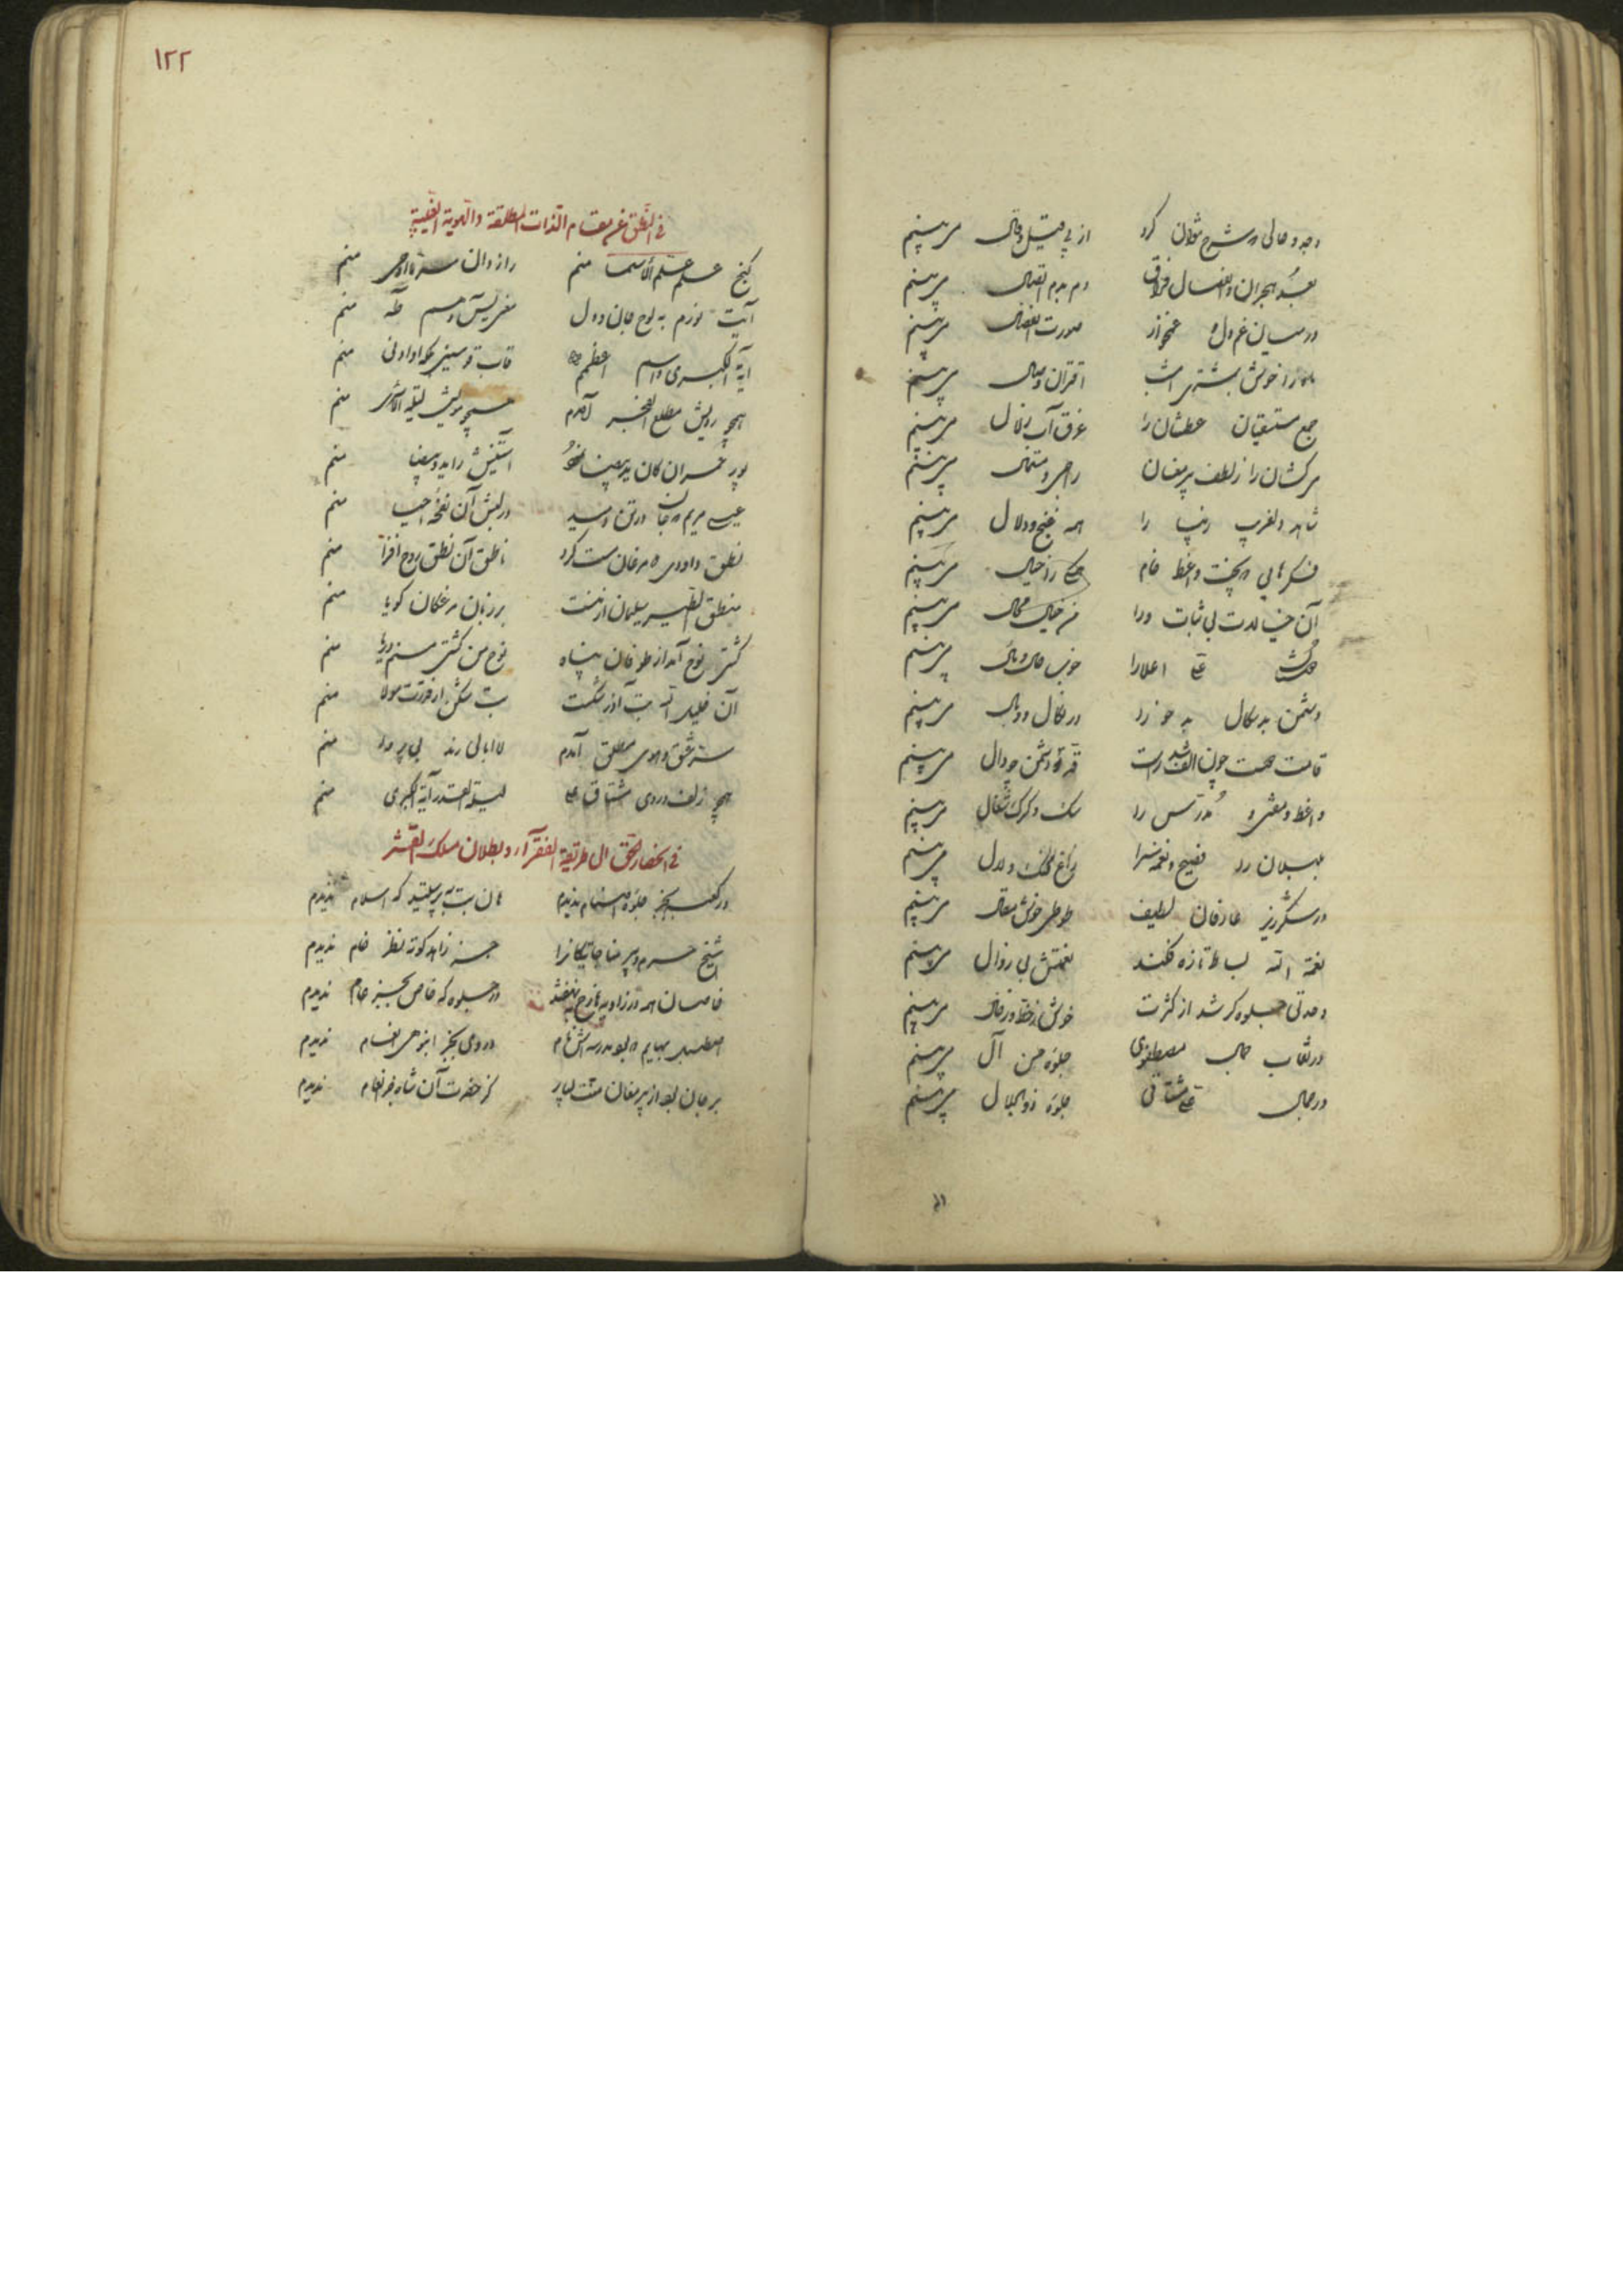 وجد و حالی که شرح نتوان کرد از پی قیل و قال می‌بینم
بعد هجران و انفصال فراق دم بدم اتصال می‌بینم
در میان غم دل و غمخوار صورت انفصال می‌بینم
ماه را خوش بمشتری امشب اقتران وصال می‌بینم
جمع مستسقیان عطشان را غرق آب زلال می‌بینم
سرکشان را ز لطف پیر مغان
شاهد دلفریب زیبا را همه غنج و دلال می‌بینم
فکرهای نپخت واعظ خام را خیال می‌بینم
آن خیالات بی ثبات ورا هم خیال محال می‌بینم
اعدا را خون حلال و مال می‌بینم
دشمن بدسکال بدخو را در نکال و وبال می‌بینم
قامت محبت چون الف شد راست قد دشمن چو دال می‌بینم
واعظ و مفتی و مدرس را سک و کرک و شغال می‌بینم
بلبلان را فصیح و نغمه سرا زاغ را کنک و لال می‌بینم
در شکرریز عارفان لطیف طوطی خوش مقال می‌بینم
نعمة الله بساط تازه فکند نعمتش بی زوال می‌بینم
وحدتی جلوه‌کر شد از کثرت خوش ز خط و ز خال می‌بینم
در نقاب جمال مصطفوی جلوه حسن آل می‌بینم
در جمال مشتاقی جلوه ذوالجلال می‌بینم
١٢٢
فی النطق عن مقام الذات المطلقة والهویة الغیبیة
کنج علم علم الاسما منم رازدان سر ما اوحی منم
آیت نورم به لوح جان و دل مغز یس و سم طه منم
آیة الکبری و اسم اعظمم قاب قوسین بلکه او ادنی منم
همچو رویش مطلع الفجر آمدم همچو مویش لیلة الاسری منم
پور عمران کان ید بیضا نمود آستینش را ید بیضا منم
عیسی مریم که جان در تن دمید در لبش آن نفخه احیا منم
نطق داودی که مرغان مست کرد ناطق آن نطق روح افزا منم
منطق الطیر سلیمان از منست بر زبان مرغکان کویا منم
کشتی نوح آمد از طوفان پناه نوح من کشتی منم دریا منم
آن خلیل الله بت آذر شکست بت شکن از قوت مولا منم
سر عشق و هوی مطلق آمدم لاابالی رند بی پروا منم
همچو زلف و روی مشتاق علی لیلة القدر آیة الکبری منم
فی انحصار الحق الی طریقة الفقرآء و بطلان مسلک القشر
در کعبه بجز جلوه اصنام ندیدم هان بت بپرستید که اسلام ندیدم
شیخ حرم و پیر مناجاتیکانرا جز زاهد کوته نظر خام ندیدم
خاصان همه در زاویه در جلوه که خاص بجز عام ندیدم
اصطبل بهایم که بود مدرسه‌اش نام در وی بجز انبوهی انعام ندیدم
بر جان بود از پیر مغان منت بسیار کز حضرت آن شاه جز انعام ندیدم